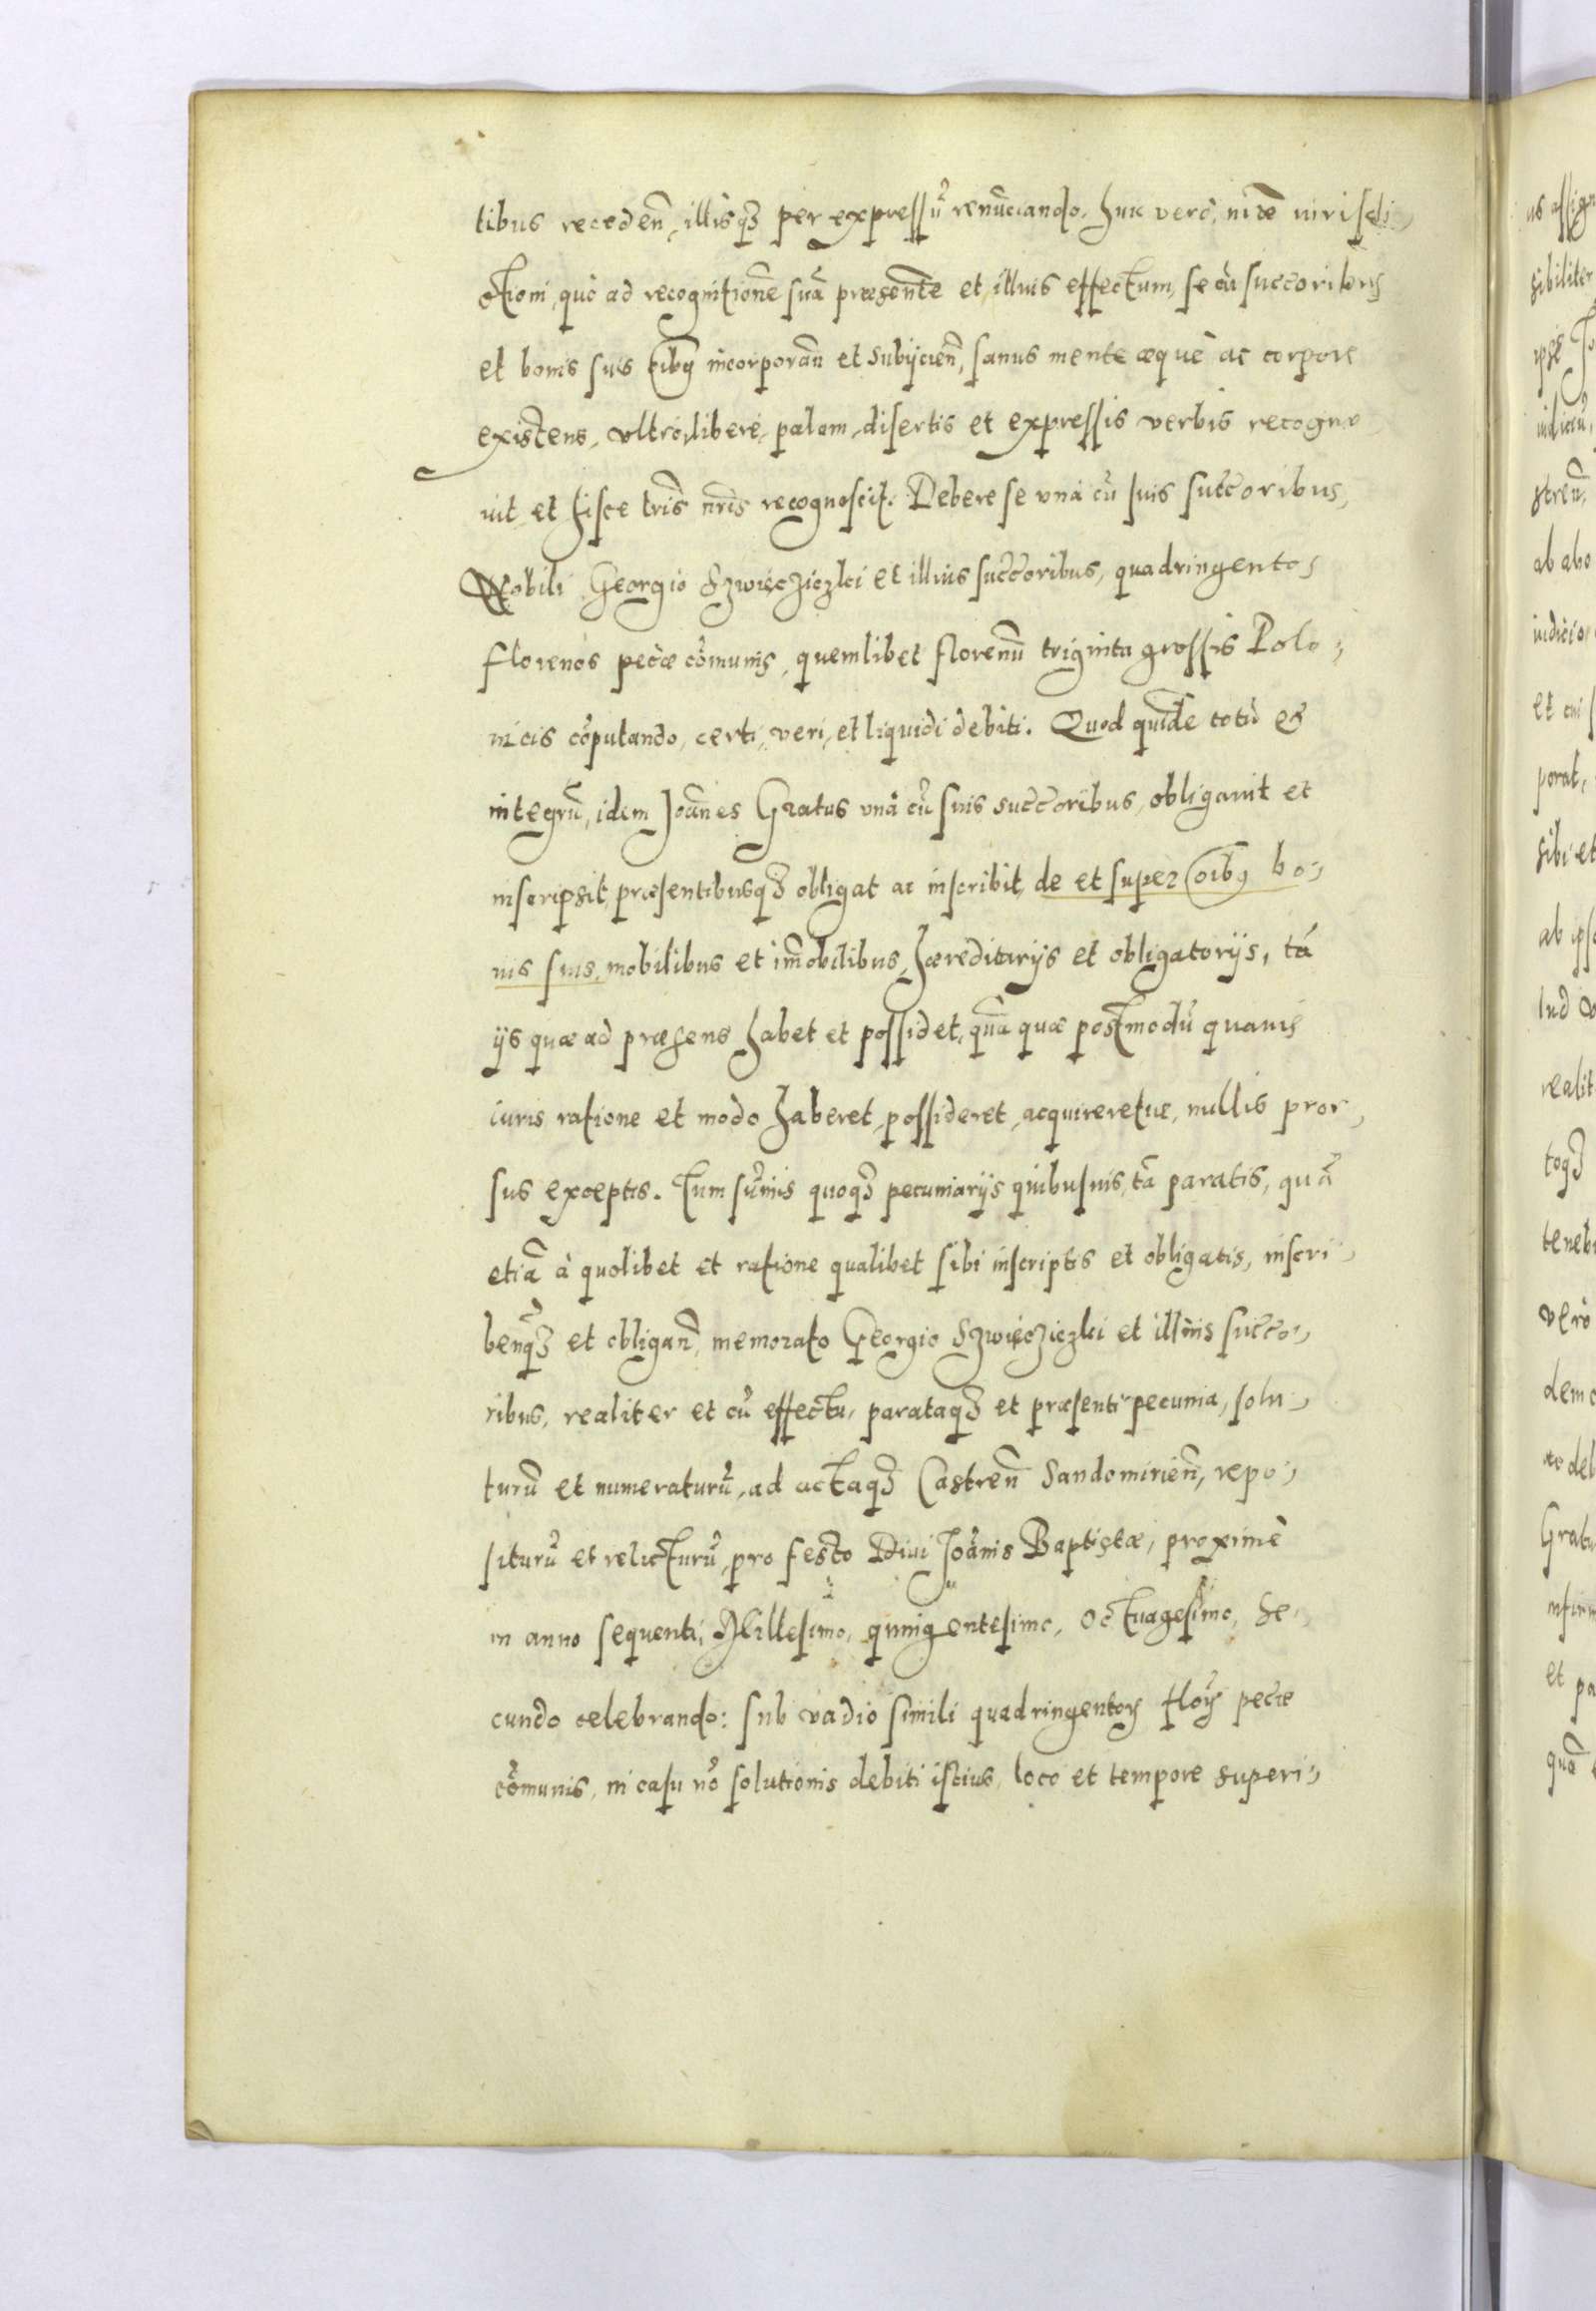 tibus recedeñ, illisq₃ per expressũ renũciando. Huic verò, nr̃æ iurisdi⸗
ctioni, quò ad recognitionẽ suã præsentẽ et illius effectum, se cũ succ̃oribus
et bonis suis oĩbꝫ incorporañ et subijcieñ, sanus mente æquè ac corpore
existens, vltrò, liberè, palam, disertis et expressis verbis recogno⸗
uit, et hisce lr̃is nr̃is recognoscit. Debere se vnà cũ suis succ̃oribus,
Nobili Georgio Szwięcziczki et illius succ̃oribus, quadringentos
florenos pecũæ cõmunis, quemlibet florenũ triginta grossis Polo⸗
nicis cõputando, certi, veri, et liquidi debiti. Quod quidẽ totũ et
integrũ, idem Joãnes Gratus vnà cũ suis succ̃oribus, obligauit et
inscripsit, præsentibusq₃ obligat ac inscribit, de et super oĩbꝫ bo⸗
nis suis, mobilibus et im̃obilibus, hæreditarijs et obligatorijs, tã
ijs quæ ad præsens habet et possidet, quã quæ postmodũ quauis
iuris ratione et modo haberet, possideret, acquireretue, nullis pror⸗
sus exceptis. Tum sũmis quoq₃ pecuniarijs quibusuis, tã paratis, quã
etiã à quolibet et ratione qualibet sibi inscriptis et obligatis, inscri⸗
beñq₃ et obligañ, memorato Georgio Szwięcziczki et illius succ̃o⸗
ribus, realiter et cũ effectu, parataq₃ et præsenti pecunia, solu⸗
turũ et numeraturũ, ad actaq₃ Castreñ Sandomirieñ, repo⸗
siturũ et relicturũ, pro festo Diui Joãnis Baptistæ, proximè
in anno sequenti, Millesimo, quingentesimo, octuagesimo, se⸗
cundo celebrando: sub vadio simili quadringentoꝝ floꝝ pecũæ
cõmunis, in casu nõ solutionis debiti istius, loco et tempore superi⸗